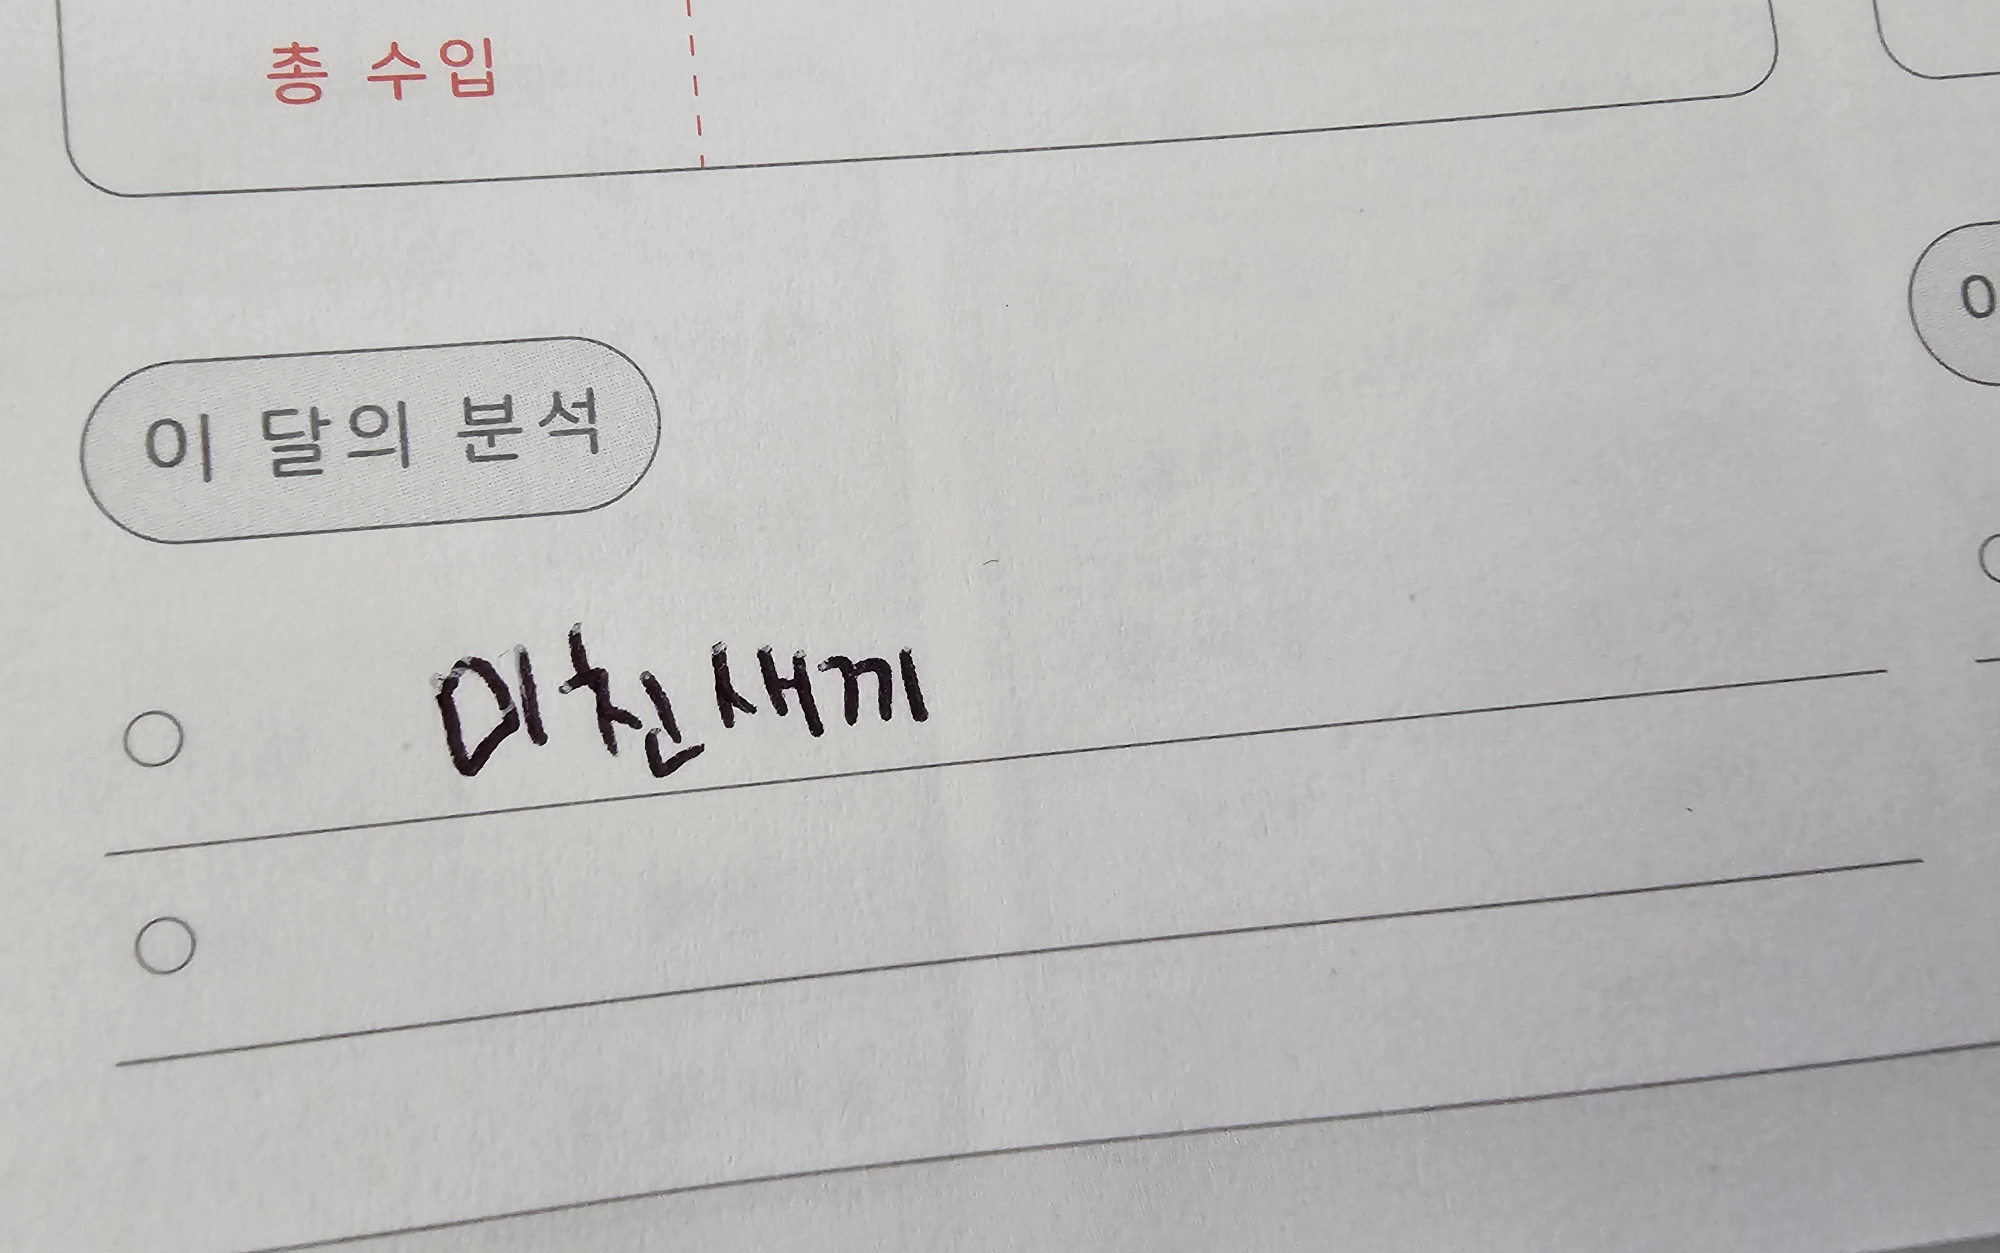 총 수입
이 달의 분석
미친새끼